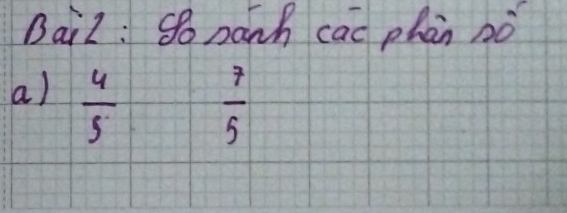 Bài 2: So sánh các phân số
a) 4/5 7/5